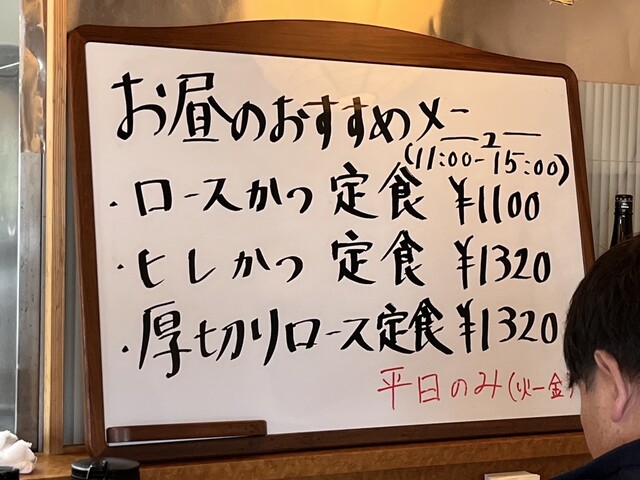 お昼のおすすめメニュー
(11:00-15:00)
・ロースかつ定食 ¥1100
・ヒレかつ 定食 ¥1320
・厚切りロース定食 ¥1320
平日のみ(火ー金)